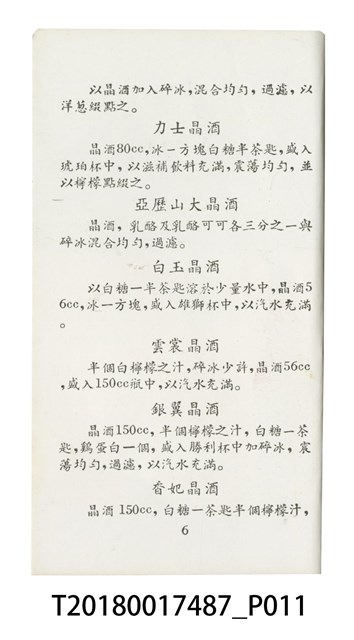 以晶酒加入碎冰,混合均勻,過濾,以
洋葱綴點之。
力士晶酒
晶酒80cc,冰一方塊白糖半茶匙,盛入
琥珀杯中,以滋補飲料充滿,震蕩均勻,並
以檸檬點綴之。
亞歷山大晶酒
晶酒,乳酪及乳酪可可各三分之一與
碎冰混合均勻,過濾。
白玉晶酒
以白糖一半茶匙溶於少量水中,晶酒5
6cc,冰一方塊,盛入雄獅杯中,以汽水充滿
。
雲裳晶酒
半個白檸檬之汁,碎冰少許,晶酒56cc
,盛入150cc瓶中,以汽水充滿。
銀翼晶酒
晶酒150cc,半個檸檬之汁,白糖一茶
匙,鷄蛋白一個,盛入勝利杯中加碎冰,震
蕩均勻,過濾,以汽水充滿。
香妃晶酒
晶酒150cc,白糖一茶匙半個檸檬汁,
6
T20180017487_P011